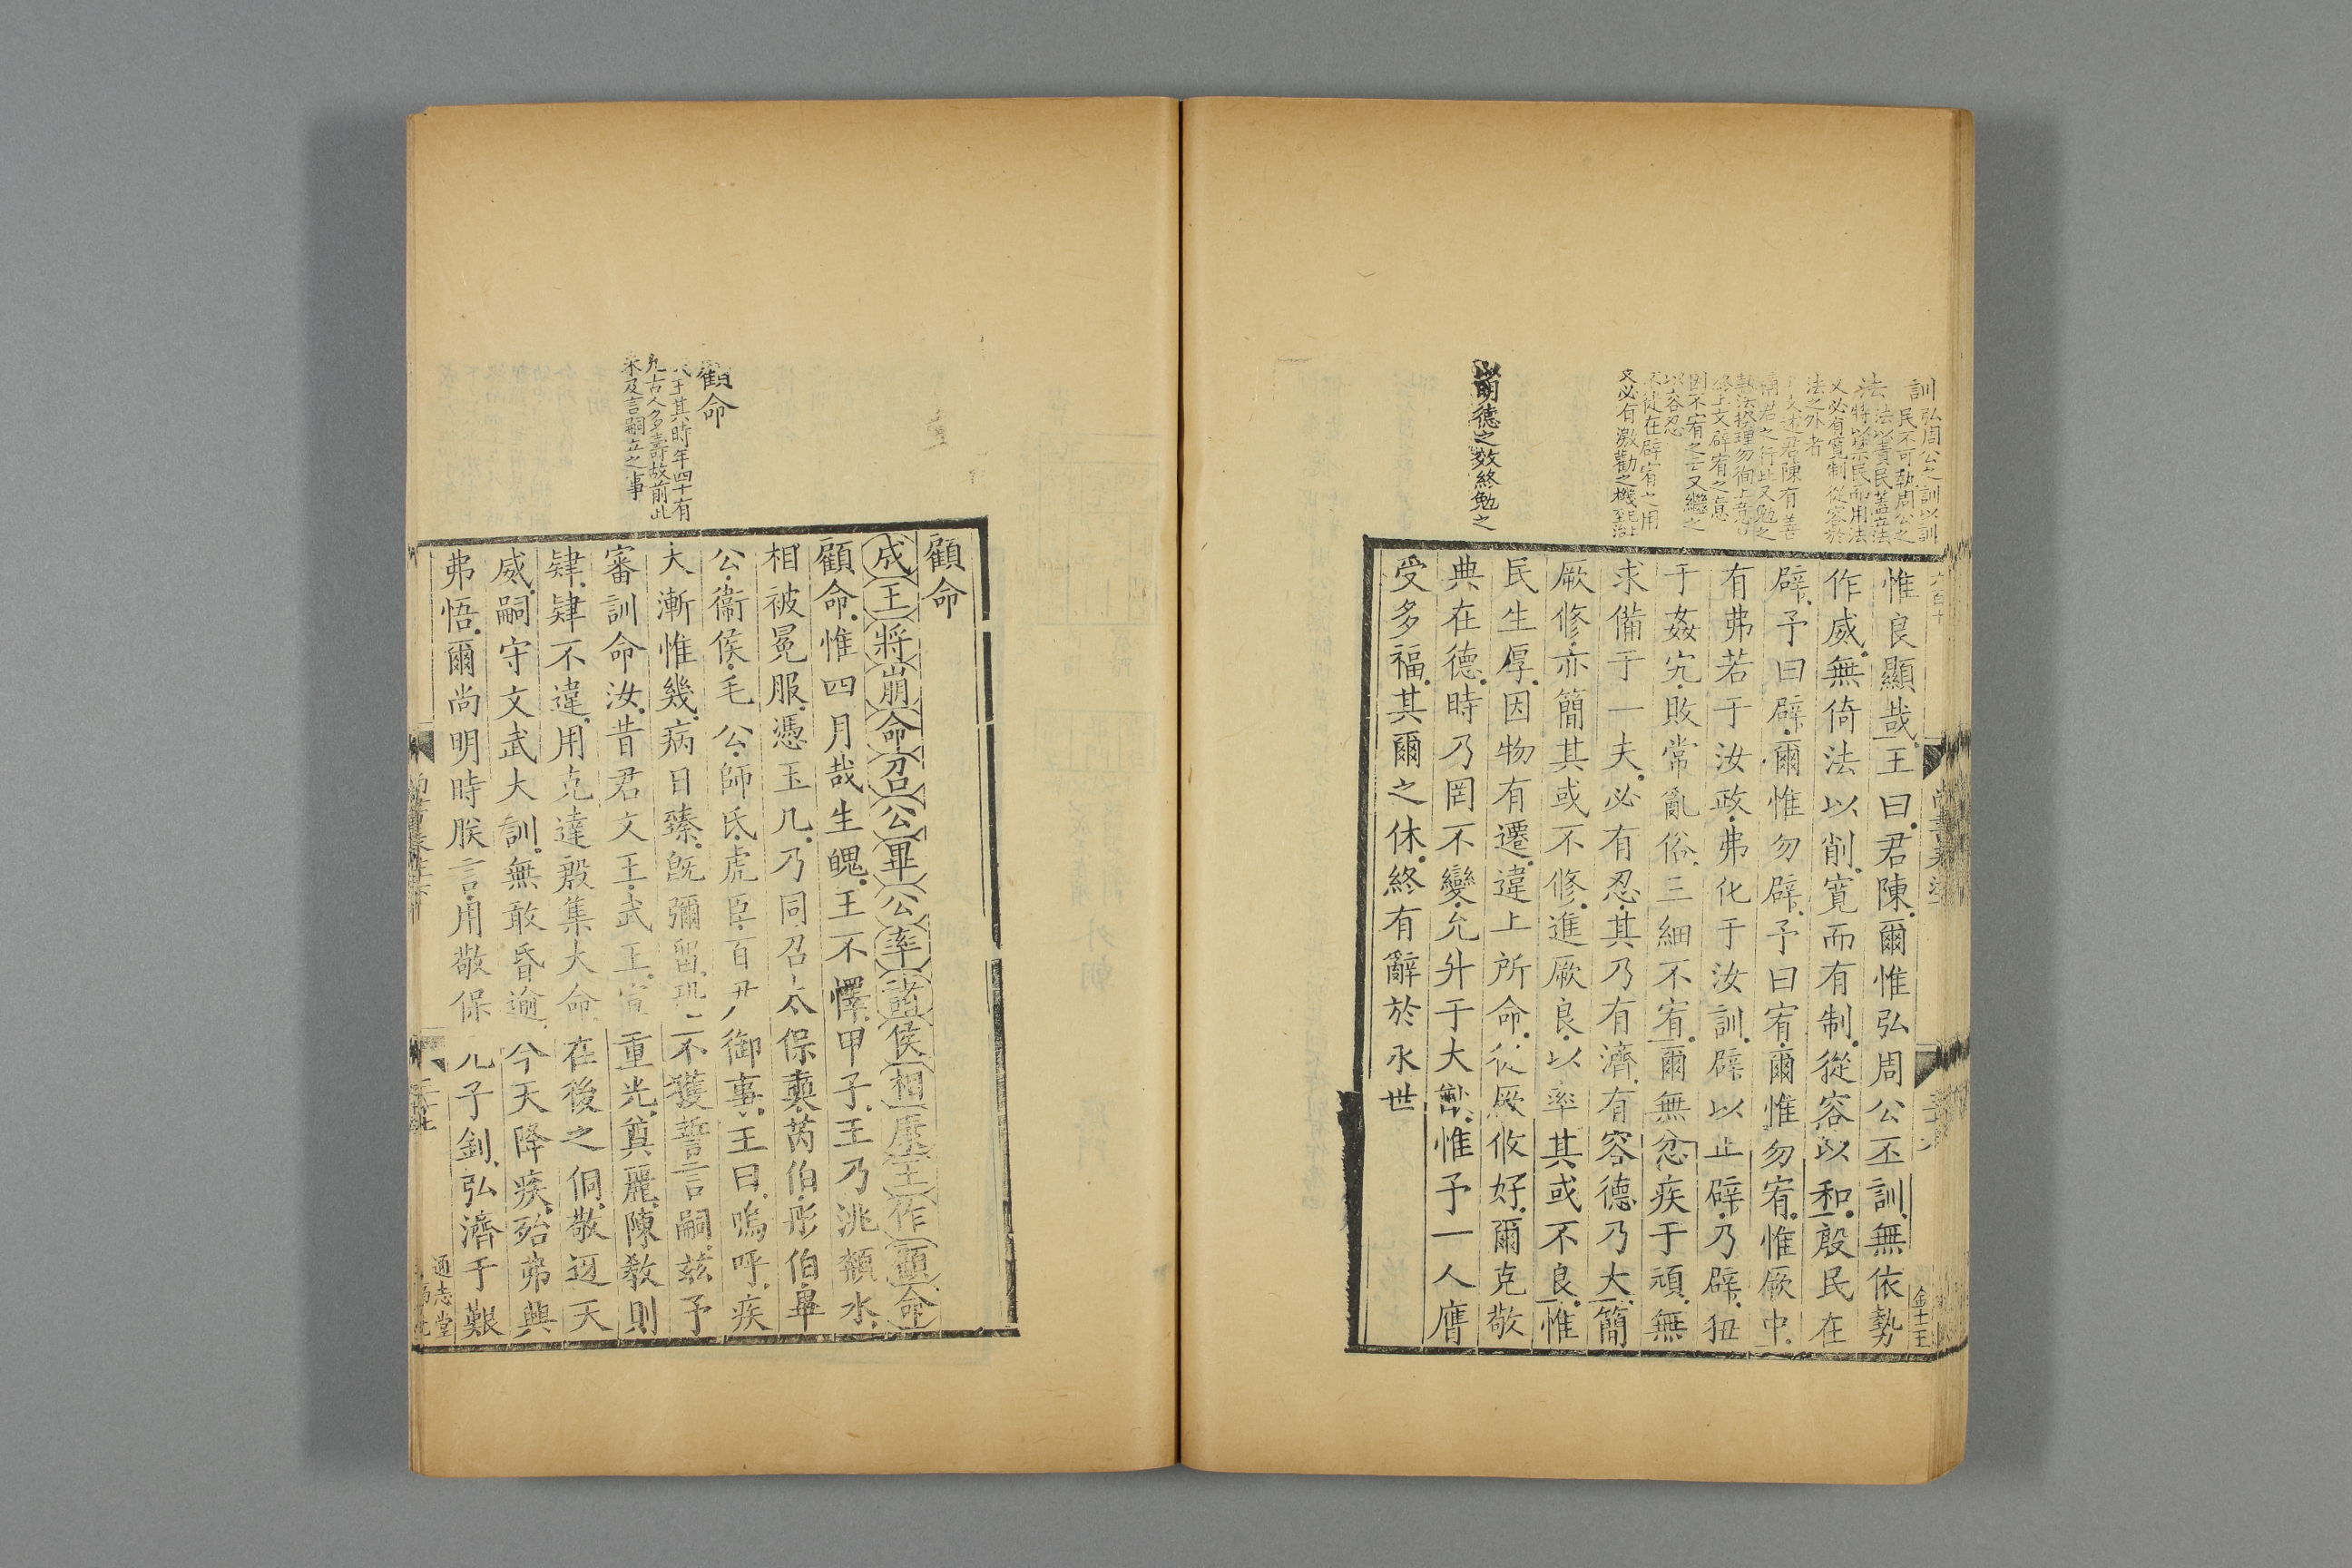 訓弘周公之訓以訓
民不可執周公之
法法以責民蓋立法
特以禁民而用法
又必有寬制從容於
法之外者
又述君陳有善
稱君之行此又勉之
執法揆理勿徇上意
上文辟宥之意
不宥之云又繼之
以容忍
從在辟宥之用
又必有激勸之機
以明德之效終勉之
惟良顯哉王曰君陳爾惟弘周公丕訓無依勢
作威無倚法以削寬而有制從容以和殷民在
辟予曰辟爾惟勿辟予曰宥爾惟勿宥惟厥中
有弗若于汝政弗化于汝訓辟以止辟乃辟狃
于姦宄敗常亂俗三細不宥爾無忿疾于頑無
求備于一夫必有忍其乃有濟有容德乃大簡
厥修亦簡其或不修進厥良以率其或不良惟
民生厚因物有遷違上所命從厥攸好爾克敬
典在德時乃罔不變允升于大猷惟予一人膺
受多福其爾之休終有辭於永世
金士玉
顧命
王其時年四十有
九古人多壽故前此
未及言嗣立之事
顧命
成王將崩命召公畢公率諸侯相康王作顧命
顧命惟四月哉生魄王不懌甲子王乃洮頮水
相被冕服憑玉几乃同召太保奭芮伯彤伯畢
公衞侯毛公師氏虎臣百尹御事王曰嗚呼疾
大漸惟幾病日臻既彌留恐不獲誓言嗣茲予
審訓命汝昔君文王武王宣重光奠麗陳教則
肄肄不違用克達殷集大命在後之侗敬迓天
威嗣守文武大訓無敢昏逾今天降疾殆弗興
弗悟爾尚明時朕言用敬保元子釗弘濟于艱
通志堂